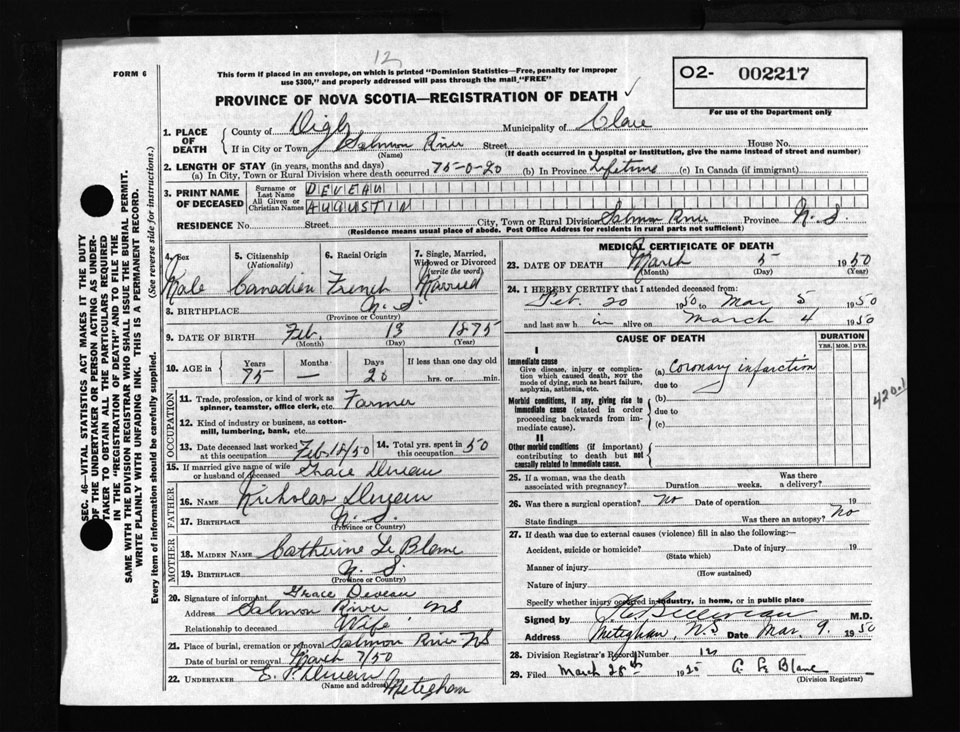 12
FORM 6
This form if placed in an envelope, on which is printed "Dominion Statistics—Free, penalty for improper
use $300," and properly addressed will pass through the mail, "FREE"
O2- 002217
PROVINCE OF NOVA SCOTIA—REGISTRATION OF DEATH ✓
For use of the Department only
1. PLACE OF DEATH County of Digby Municipality of Clare
If in City or Town Salmon River Street House No.
(Name) (If death occurred in a hospital or institution, give the name instead of street and number)
2. LENGTH OF STAY (in years, months and days)
(a) In City, Town or Rural Division where death occurred 75-0-20 (b) In Province Lifetime (c) In Canada (if immigrant)
3. PRINT NAME OF DECEASED Surname or Last Name DEVEAU
All Given or Christian Names AUGUSTIN
RESIDENCE No. Street City, Town or Rural Division Salmon River Province N.S.
(Residence means usual place of abode. Post Office Address for residents in rural parts not sufficient)
4. Sex 5. Citizenship (Nationality) 6. Racial Origin 7. Single, Married, Widowed or Divorced (write the word)
Male Canadian French Married
8. BIRTHPLACE N.S.
(Province or Country)
9. DATE OF BIRTH Feb. 13 1875
(Month) (Day) (Year)
10. AGE in Years Months Days If less than one day old
75 — 20 hrs. or min.
OCCUPATION
11. Trade, profession, or kind of work as spinner, teamster, office clerk, etc. Farmer
12. Kind of industry or business, as cotton-mill, lumbering, bank, etc.
13. Date deceased last worked at this occupation Feb 18/50 14. Total yrs. spent in this occupation 50
15. If married give name of wife or husband of deceased Grace Deveau
FATHER
16. NAME Nicholas Deveau
17. BIRTHPLACE N.S.
(Province or Country)
MOTHER
18. MAIDEN NAME Catherine Le Blanc
19. BIRTHPLACE N.S
(Province or Country)
20. Signature of informant Grace Deveau
Address Salmon River NS
Relationship to deceased Wife
21. Place of burial, cremation or removal Salmon River NS
Date of burial or removal March 7/50
22. UNDERTAKER E. P. Deveau Meteghan
(Name and address)
MEDICAL CERTIFICATE OF DEATH
23. DATE OF DEATH March 5 1950
(Month) (Day) (Year)
24. I HEREBY CERTIFY that I attended deceased from:
Feb. 20 1950 to Mar 5 1950
and last saw him alive on March 4 1950
CAUSE OF DEATH DURATION
YRS. MOS. DYS.
I
Immediate cause
Give disease, injury or complication which caused death, not the mode of dying, such as heart failure, asphyxia, asthenia, etc.
(a) Coronary infarction
due to
420.1
Morbid conditions, if any, giving rise to immediate cause (stated in order proceeding backwards from immediate cause).
(b)
due to
(c)
II
Other morbid conditions (if important) contributing to death but not causally related to immediate cause.
25. If a woman, was the death associated with pregnancy? Duration weeks. Was there a delivery?
26. Was there a surgical operation? No Date of operation 19
State findings Was there an autopsy? No
27. If death was due to external causes (violence) fill in also the following:—
Accident, suicide or homicide? Date of injury 19
(State which)
Manner of injury
(How sustained)
Nature of injury
Specify whether injury occurred in industry, in home, or in public place
Signed by M.D.
Address Meteghan, N.S Date Mar. 9. 1950
28. Division Registrar's Record Number 12
29. Filed March 28th 1950 A. Le Blanc
(Division Registrar)
SEC. 46—VITAL STATISTICS ACT MAKES IT THE DUTY
OF THE UNDERTAKER OR PERSON ACTING AS UNDER-
TAKER TO OBTAIN ALL THE PARTICULARS REQUIRED
IN THE "REGISTRATION OF DEATH" AND TO FILE THE
SAME WITH THE DIVISION REGISTRAR WHO SHALL ISSUE THE BURIAL PERMIT.
WRITE PLAINLY WITH UNFADING INK. THIS IS A PERMANENT RECORD.
Every item of information should be carefully supplied. (See reverse side for instructions.)